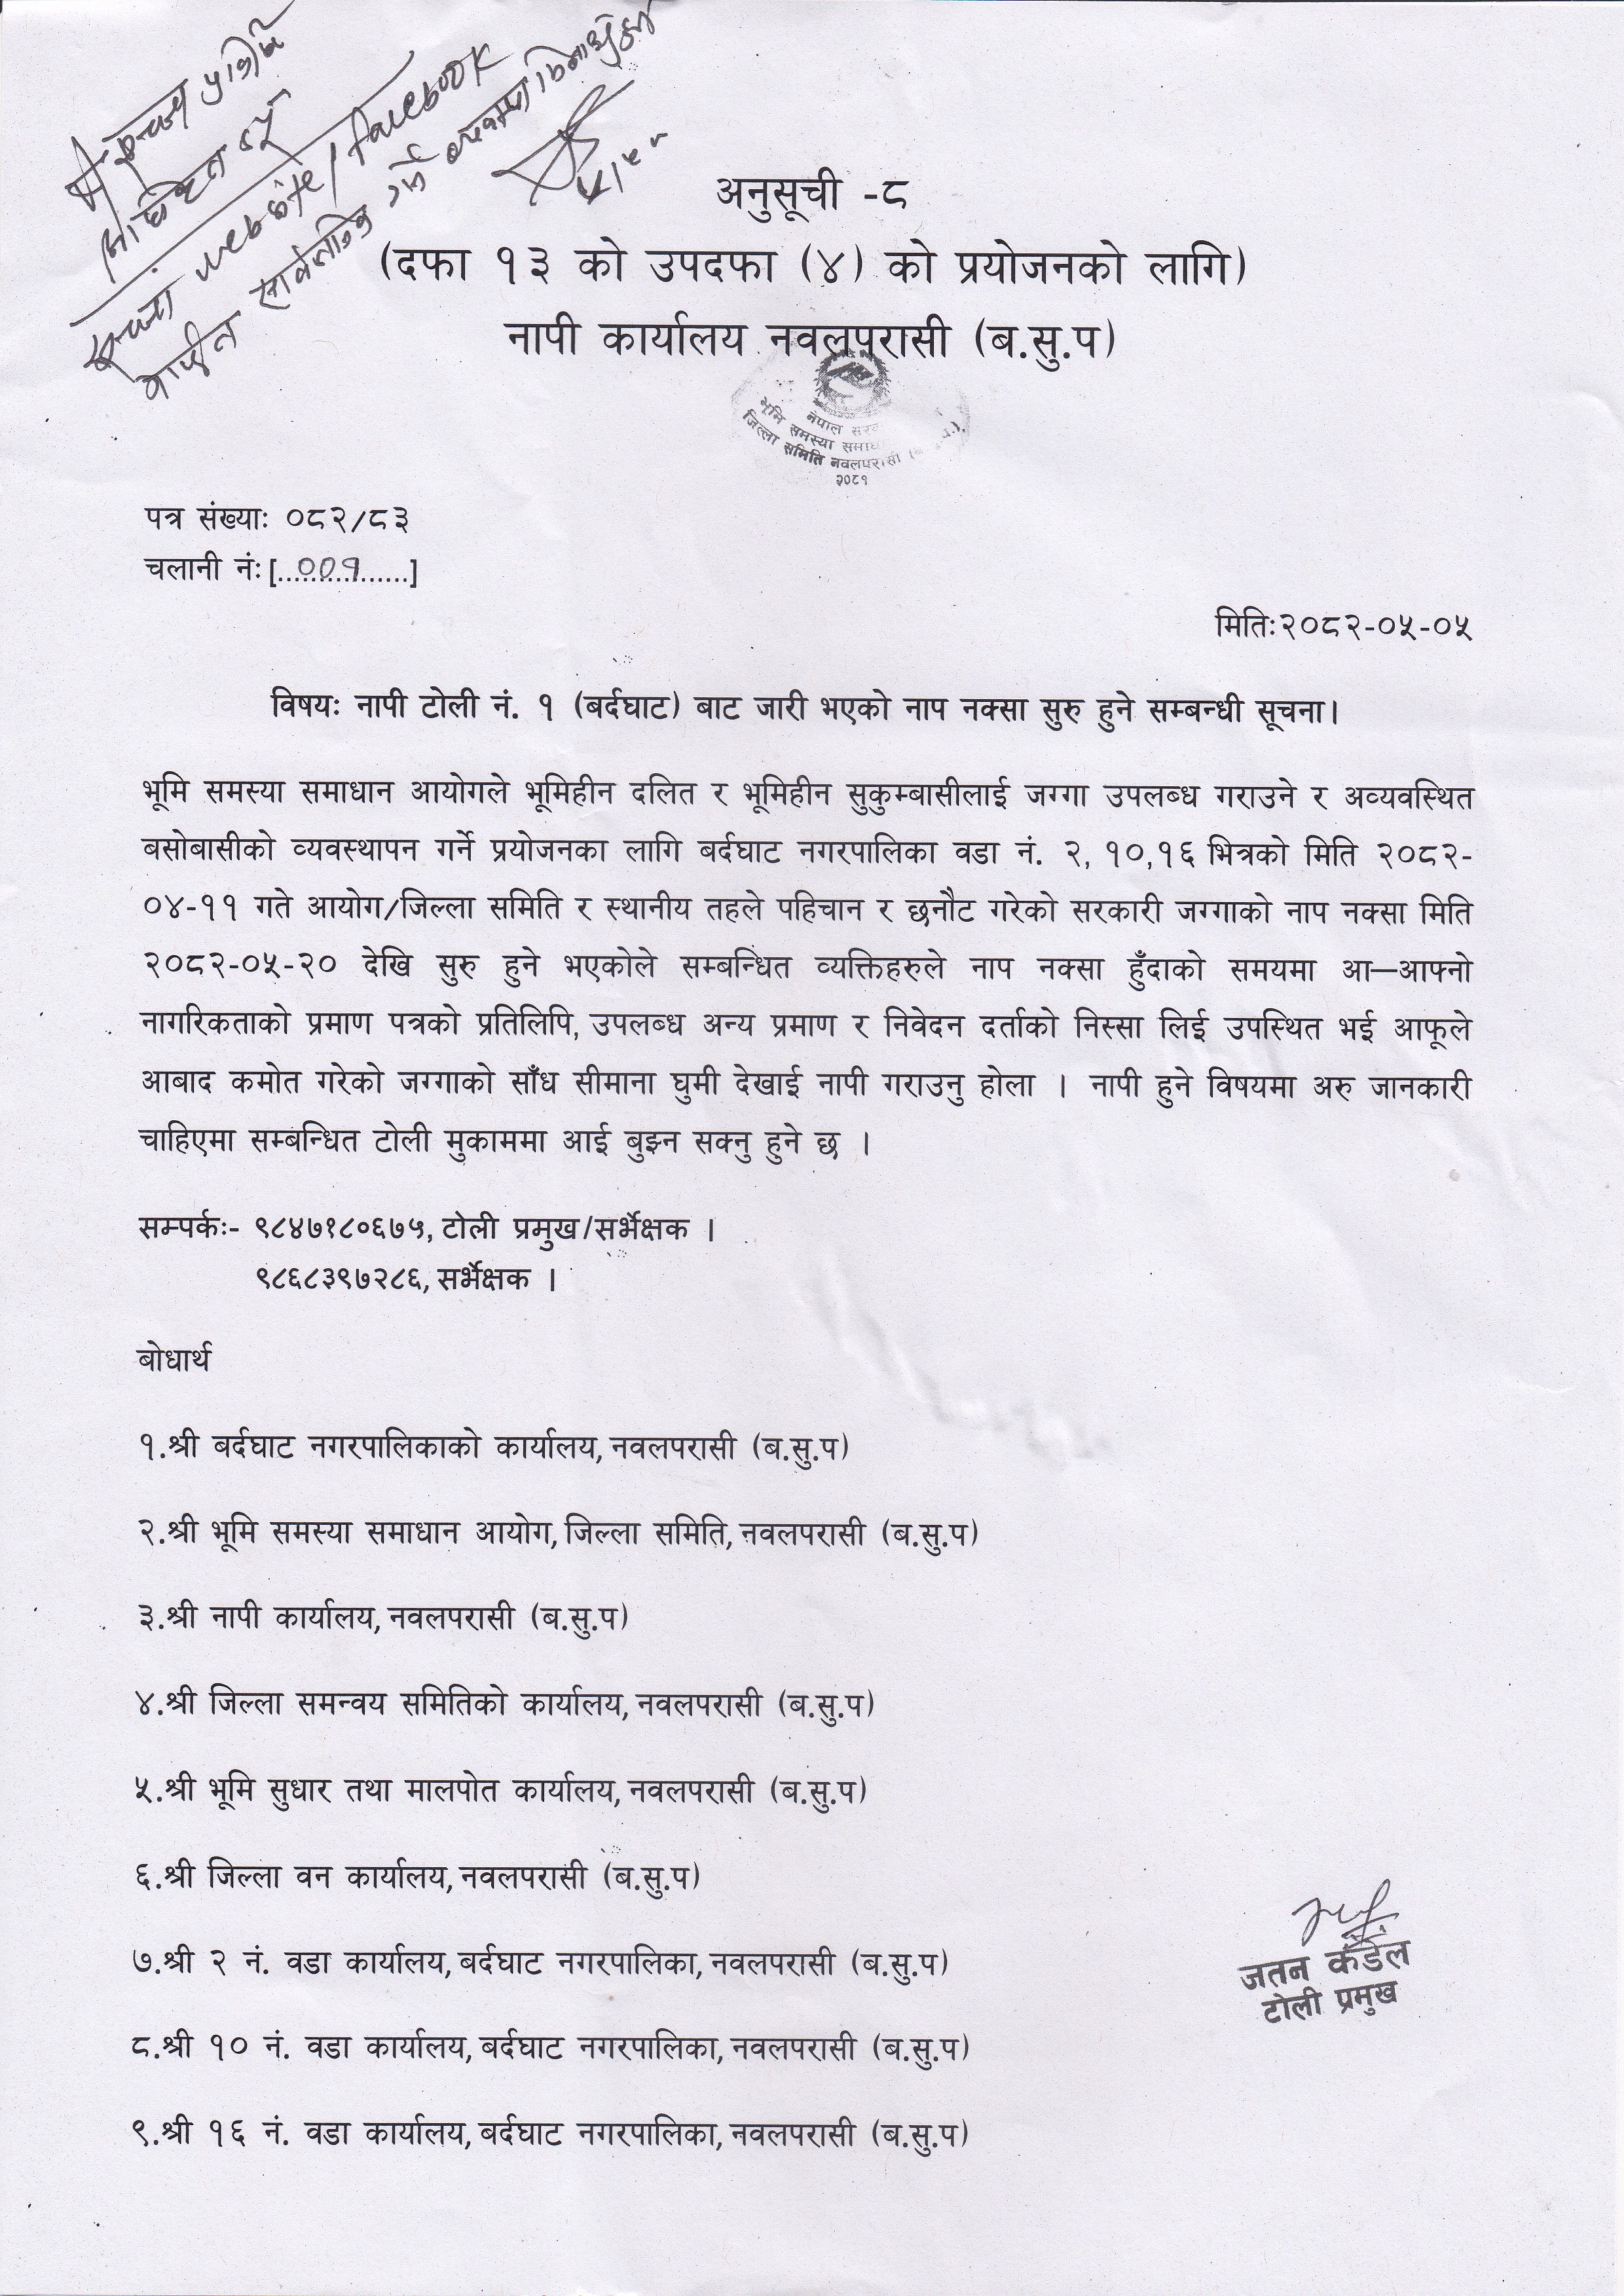 सूचना website/facebook
अनुसूची -८
(दफा १३ को उपदफा (४) को प्रयोजनको लागि)
नापी कार्यालय नवलपरासी (ब.सु.प)
नेपाल सरकार
भूमि समस्या समाधान
जिल्ला समिति नवलपरासी (ब.सु.प.)
२०८१
पत्र संख्याः ०८२/८३
चलानी नंः [....००१....]
मितिः२०८२-०५-०५
विषयः नापी टोली नं. १ (बर्दघाट) बाट जारी भएको नाप नक्सा सुरु हुने सम्बन्धी सूचना।
भूमि समस्या समाधान आयोगले भूमिहीन दलित र भूमिहीन सुकुम्बासीलाई जग्गा उपलब्ध गराउने र अव्यवस्थित
बसोबासीको व्यवस्थापन गर्ने प्रयोजनका लागि बर्दघाट नगरपालिका वडा नं. २, १०,१६ भित्रको मिति २०८२-
०४-११ गते आयोग/जिल्ला समिति र स्थानीय तहले पहिचान र छनौट गरेको सरकारी जग्गाको नाप नक्सा मिति
२०८२-०५-२० देखि सुरु हुने भएकोले सम्बन्धित व्यक्तिहरुले नाप नक्सा हुँदाको समयमा आ—आफ्नो
नागरिकताको प्रमाण पत्रको प्रतिलिपि, उपलब्ध अन्य प्रमाण र निवेदन दर्ताको निस्सा लिई उपस्थित भई आफूले
आबाद कमोत गरेको जग्गाको साँध सीमाना घुमी देखाई नापी गराउनु होला । नापी हुने विषयमा अरु जानकारी
चाहिएमा सम्बन्धित टोली मुकाममा आई बुझ्न सक्नु हुने छ ।
सम्पर्कः- ९८४७१८०६७५, टोली प्रमुख/सर्भेक्षक ।
९८६८३९७२८६, सर्भेक्षक ।
बोधार्थ
१.श्री बर्दघाट नगरपालिकाको कार्यालय, नवलपरासी (ब.सु.प)
२.श्री भूमि समस्या समाधान आयोग, जिल्ला समिति, नवलपरासी (ब.सु.प)
३.श्री नापी कार्यालय, नवलपरासी (ब.सु.प)
४.श्री जिल्ला समन्वय समितिको कार्यालय, नवलपरासी (ब.सु.प)
५.श्री भूमि सुधार तथा मालपोत कार्यालय, नवलपरासी (ब.सु.प)
६.श्री जिल्ला वन कार्यालय, नवलपरासी (ब.सु.प)
७.श्री २ नं. वडा कार्यालय, बर्दघाट नगरपालिका, नवलपरासी (ब.सु.प)
जतन कंडेल
टोली प्रमुख
८.श्री १० नं. वडा कार्यालय, बर्दघाट नगरपालिका, नवलपरासी (ब.सु.प)
९.श्री १६ नं. वडा कार्यालय, बर्दघाट नगरपालिका, नवलपरासी (ब.सु.प)